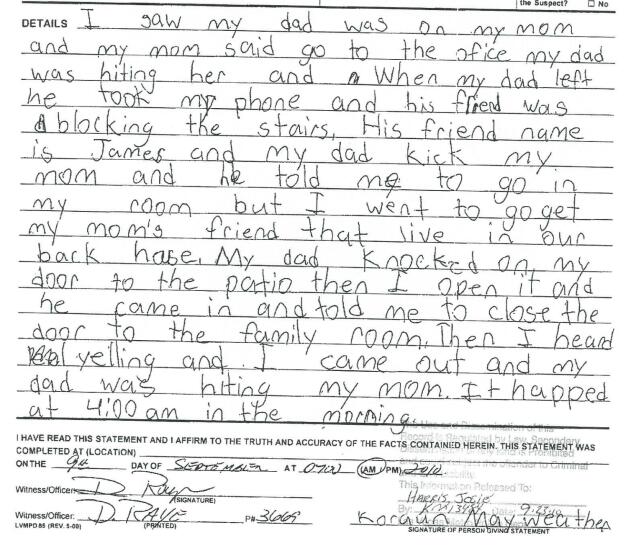 the Suspect? ☐ No
DETAILS I saw my dad was on my mom
and my mom said go to the ofice my dad
was hiting her and When my dad left
he took my phone and his friend was
blocking the stairs. His friend name
is James and my dad kick my
mom and he told me to go in
my room but I went to go get
my mom's friend that live in our
back hose. My dad knocked on my
door to the patio then I open it and
he came in and told me to close the
door to the family room. Then I heard
yelling and I came out and my
dad was hiting my mom. It happed
at 4:00 am in the morning.
I HAVE READ THIS STATEMENT AND I AFFIRM TO THE TRUTH AND ACCURACY OF THE FACTS CONTAINED HEREIN. THIS STATEMENT WAS
COMPLETED AT (LOCATION)
ON THE 9th DAY OF SEPTEMBER AT 0700 (AM / PM), 2010.
This Information Released To:
Witness/Officer: (SIGNATURE)
HARRIS, JOSIE
By: Date:
Witness/Officer: D. RAVE (PRINTED) P# 3669
Koraun Mayweather
LVMPD 85 (REV. 5-00) SIGNATURE OF PERSON GIVING STATEMENT